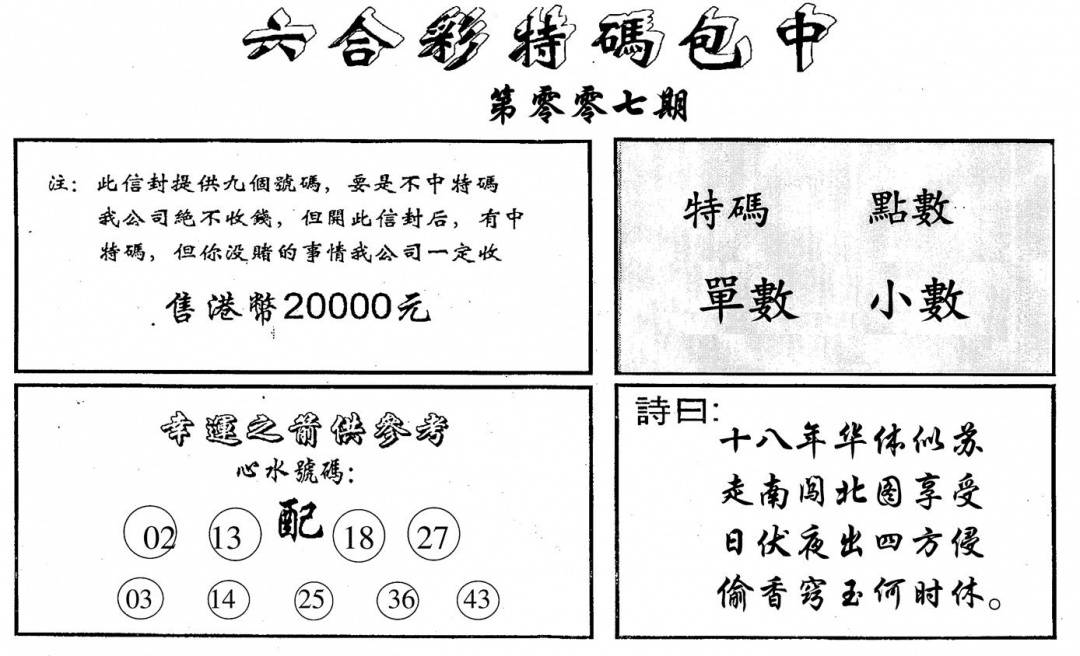 六合彩特碼包中
第零零七期
注：此信封提供九個號碼，要是不中特碼
我公司絕不收錢，但開此信封后，有中
特碼，但你没賭的事情我公司一定收
售港幣20000元
特碼 點數
單數 小數
幸運之箭供參考
心水號碼：
02 13 配 18 27
03 14 25 36 43
詩曰：
十八年华体似苏
走南闯北图享受
日伏夜出四方侵
偷香窍玉何时休。